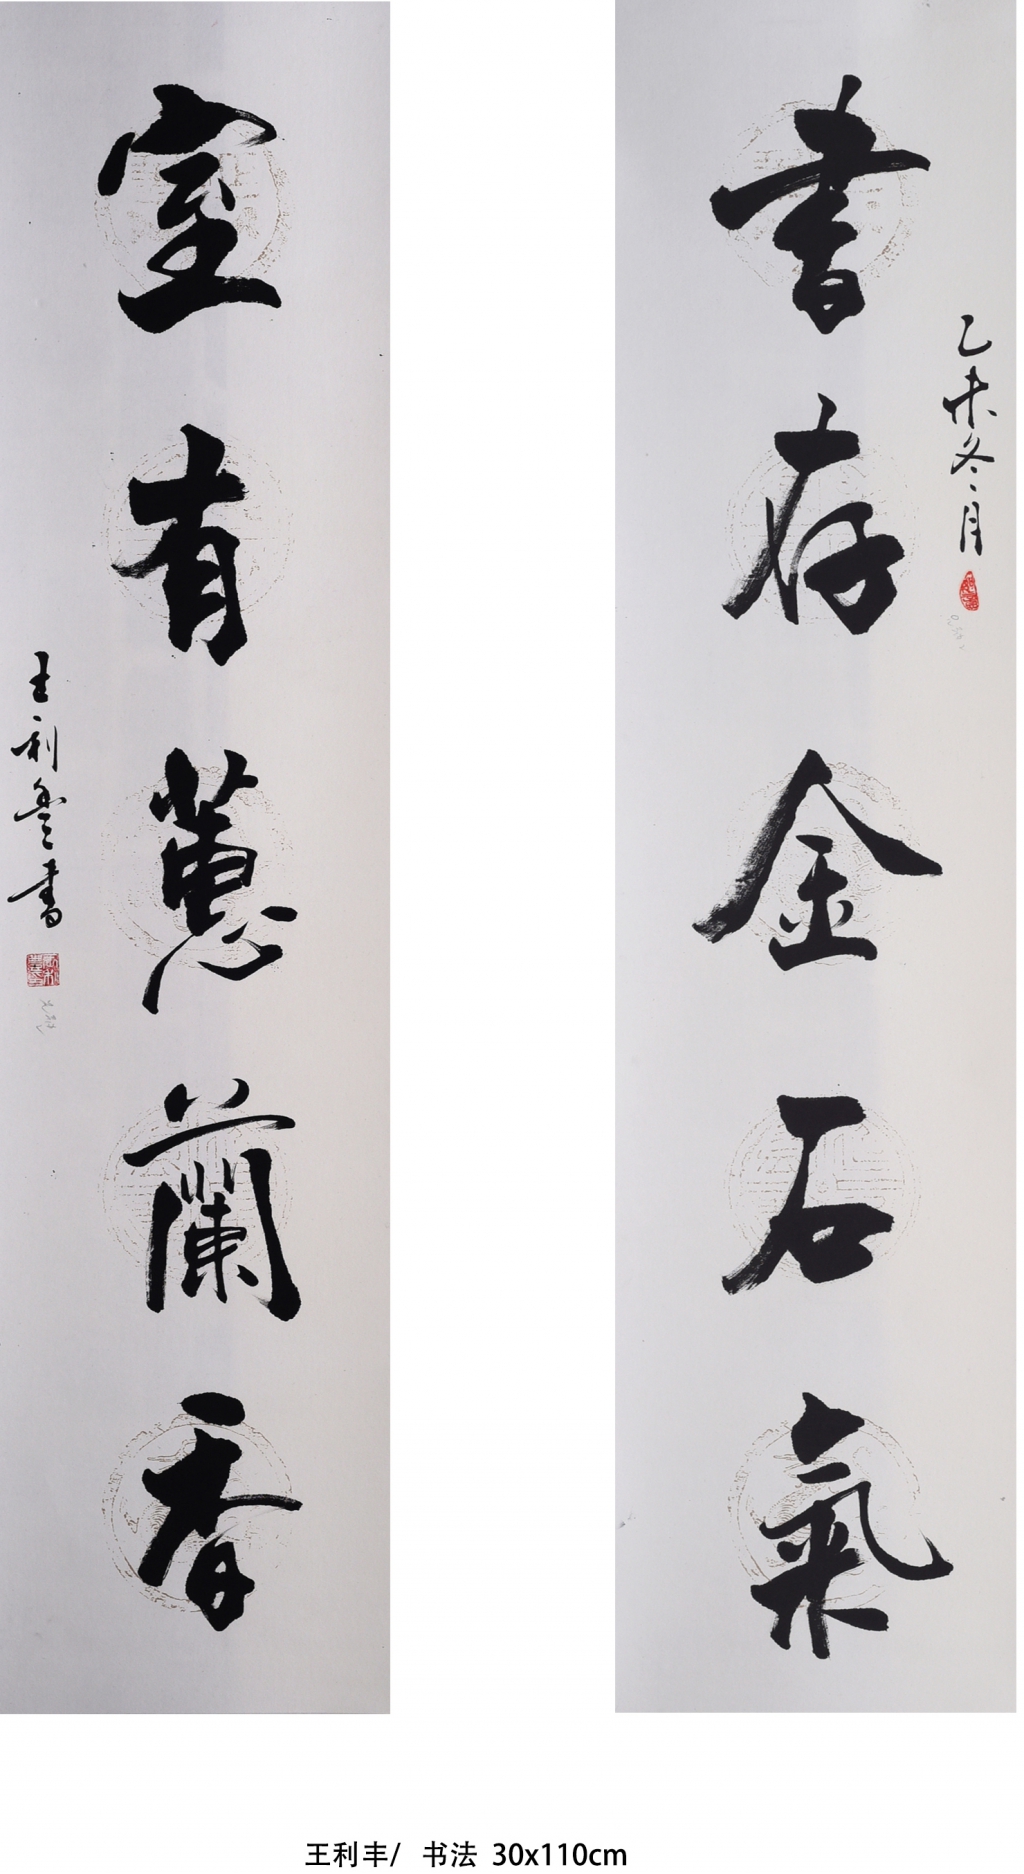 書存金石氣
乙未冬月
室有蕙蘭香
王利豐書
王利丰/ 书法 30x110cm